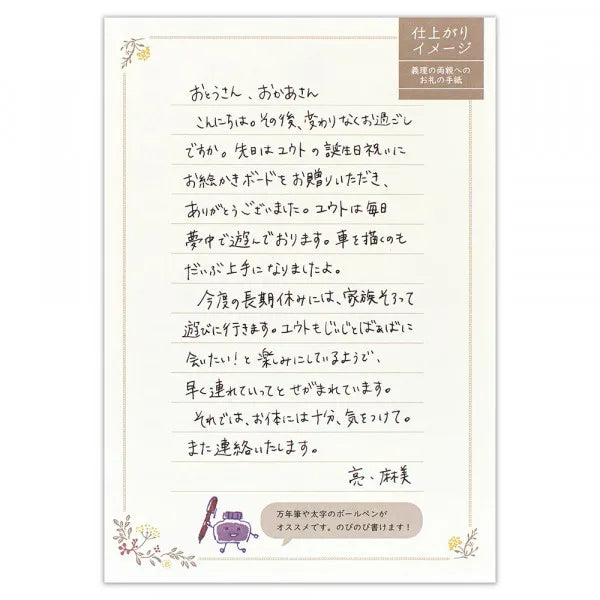 仕上がり
イメージ
義理の両親への
お礼の手紙
おとうさん、おかあさん
こんにちは。その後、変わりなくお過ごし
ですか。先日はユウトの誕生日祝いに
お絵かきボードをお贈りいただき、
ありがとうございました。ユウトは毎日
夢中で遊んでおります。車を描くのも
だいぶ上手になりましたよ。
今度の長期休みには、家族そろって
遊びに行きます。ユウトもじいじとばぁばに
会いたい!と楽しみにしているようで、
早く連れていってとせがまれています。
それでは、お体には十分、気をつけて。
また連絡いたします。
亮・麻美
万年筆や太字のボールペンが
オススメです。のびのび書けます!